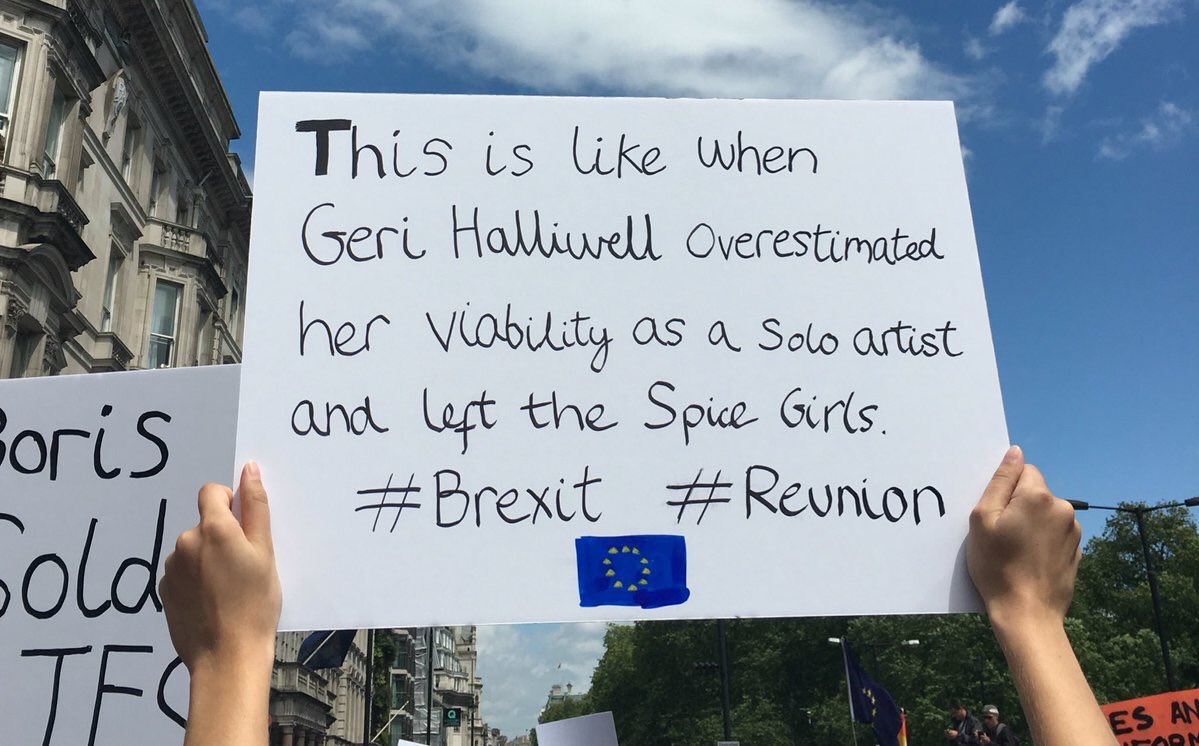 This is like when
Geri Halliwell Overestimated
her viability as a solo artist
and left the Spice Girls.
#Brexit #Reunion
Boris
Sold
ES AN